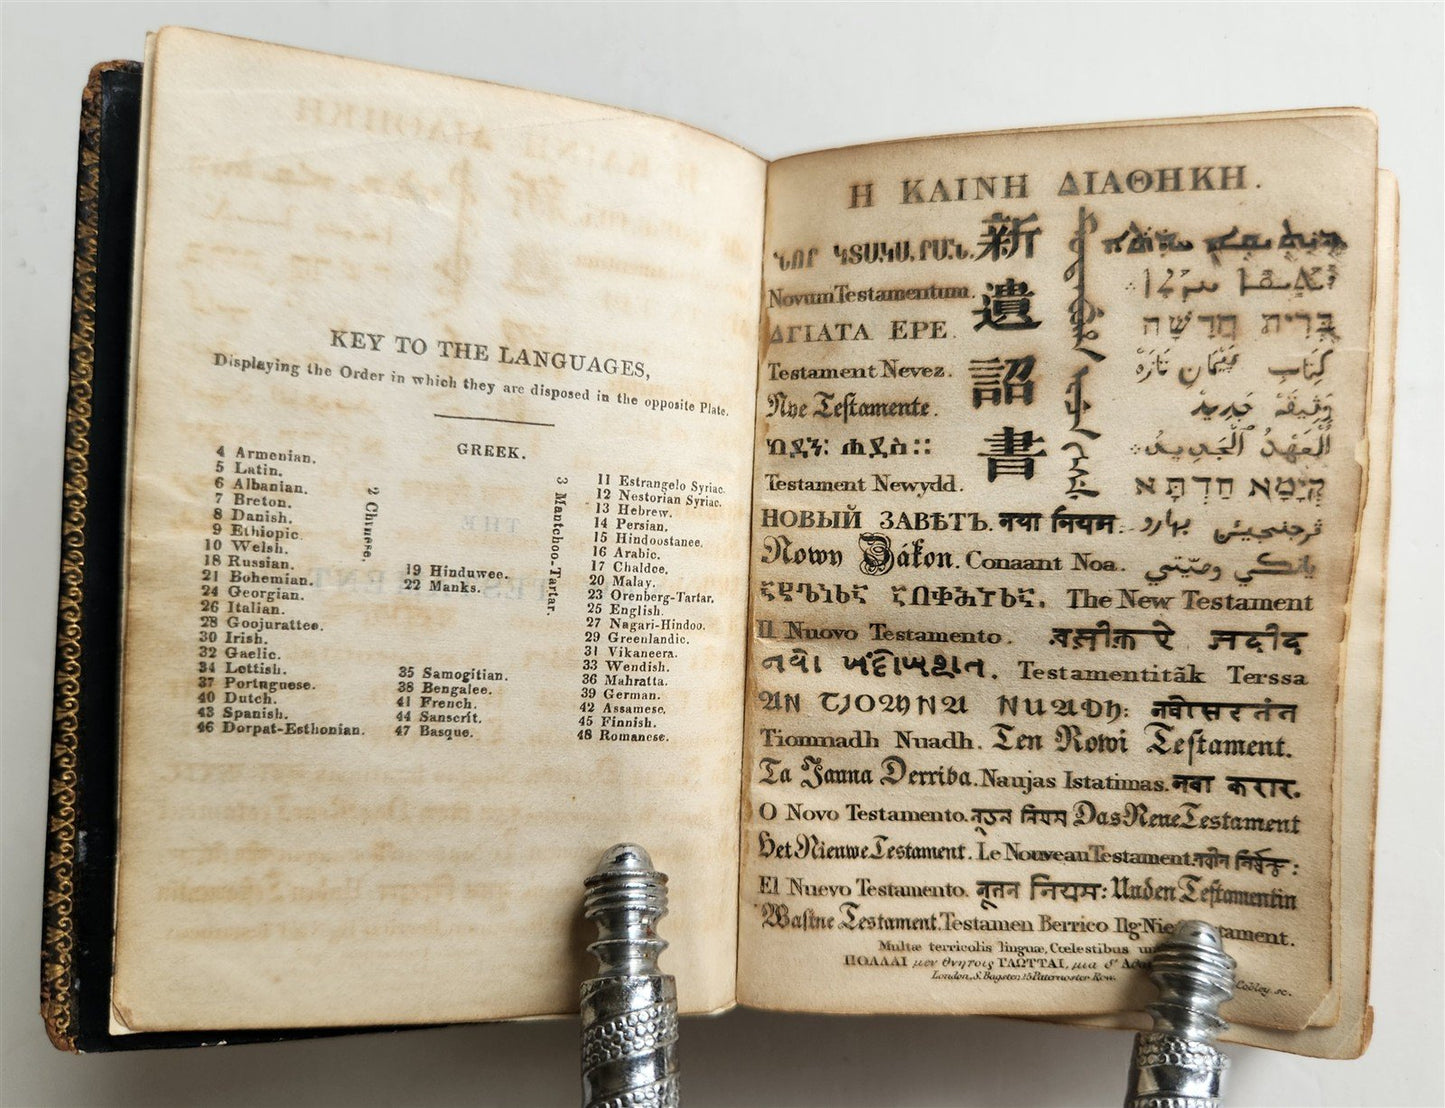 KEY TO THE LANGUAGES,
Displaying the Order in which they are disposed in the opposite Plate.
GREEK.
4 Armenian.
5 Latin.
6 Albanian.
7 Breton.
8 Danish.
9 Ethiopic.
10 Welsh.
18 Russian.
21 Bohemian.
24 Georgian.
26 Italian.
28 Goojurattee.
30 Irish.
32 Gaelic.
34 Lettish.
37 Portuguese.
40 Dutch.
43 Spanish.
46 Dorpat-Esthonian.
2 Chinese.
19 Hinduwee.
22 Manks.
35 Samogitian.
38 Bengalee.
41 French.
44 Sanscrit.
47 Basque.
3 Mantchoo-Tartar.
11 Estrangelo Syriac.
12 Nestorian Syriac.
13 Hebrew.
14 Persian.
15 Hindoostanee.
16 Arabic.
17 Chaldee.
20 Malay.
23 Orenberg-Tartar.
25 English.
27 Nagari-Hindoo.
29 Greenlandic.
31 Vikaneera.
33 Wendish.
36 Mahratta.
39 German.
42 Assamese.
45 Finnish.
48 Romanese.
Η ΚΑΙΝΗ ΔΙΑΘΗΚΗ.
ՆՈՐ ԿՏԱԿԱՐԱՆ.
新遺詔書
Novum Testamentum.
ΔΓΙΑΤΑ ΕΡΕ.
בְּרִית חֲדָשָׁה
Testament Nevez.
كتاب پیمان تازه
Nye Testamente.
وثيقة جديد
ሐዲስ፡፡
العهد الجديد
Testament Newydd.
קְיָמָא חַדְתָּא
НОВЫЙ ЗАВѢТЪ. नया नियम
Nowy Zákon. Conaant Noa.
The New Testament
Il Nuovo Testamento.
Testamentitâk Terssa
Tiomnadh Nuadh. Ten Nowi Testament.
Ta Jauna Derriba. Naujas Istatimas. नवा करार.
O Novo Testamento. নূতন নিয়ম Das Neue Testament
Het Nieuwe Testament. Le Nouveau Testament.
El Nuevo Testamento. नूतन नियमः Uuden Testamentin
Wastne Testament. Testamen Berrico Ilg Nie
Multæ terricolis linguæ, Cœlestibus
ΠΟΛΛΑΙ μεν θνητοις ΓΛΩΤΤΑΙ, μια δ'
London, S. Bagster, 15 Paternoster Row.
Cobley, sc.